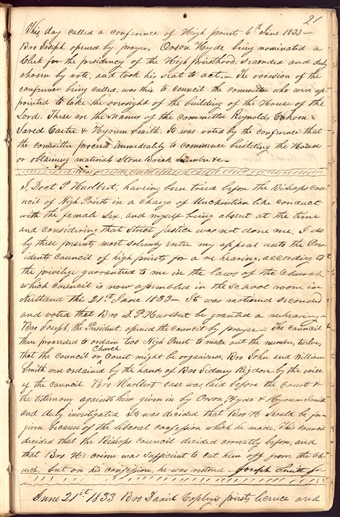 21
This day called a conference of High priest 6th June 1833—
Bro Joseph opened by prayer, Orson Hyde being nominated a
Clerk for the presidency of the High priesthood. Seconded and duly
chosen by vote, and took his seat to act,— The occasion of the
conference being called, was this to council the committe who were ap-
pointed to take the oversight of the building of the House of the
Lord. These are the names of the committee Reynolds Cahoon
Jared Carter & Hyrum Smith. It was voted by the conference that
the committee procure immediately to commence building the House
or obtaining materials Stone Brick Lumber &c—
I, Doct. P. Hurlbert, having been tried before the Bishops coun-
cil of High Priests on a charge of unchristian like conduct
with the female sex, and myself being absent at the time
and considering that strict justice was not done me, I do
by these presents most solemnly enter my appeal unto the Pres-
idents Council of high priests for a re hearing, according to
the privilege guaranteed to me in the laws of the Church
which council is now assembled in the School room in
Kirtland the 21st June 1833— It was motioned seconded
and voted that Bro D. P. Hurlbert be granted a rehearing
Bro Joseph, the President opened the council by prayer— The council
then proceeded to ordain two High Priest to make out the number, twelve,
that the council or Church Court might be organized, Bro John and William
Smith was ordained by the hands of Bro Sidney Rigdon by the voice
of the council. Bro Hurlbert case was laid before the Court &
the testimony against him given in by Orson Hyde & Hyrum Smith
and duly investigated. It was decided that Bro H. should be for-
given because of the liberal confession which he made. This council
decided that the Bishops council decided correctly before, and
that Bro H's crime was sufficient to cut him off from the Ch-
urch, but on his confession, he was restored Joseph Smith Jr
June 21st 1833 Bro Daniel Copley's priests license and